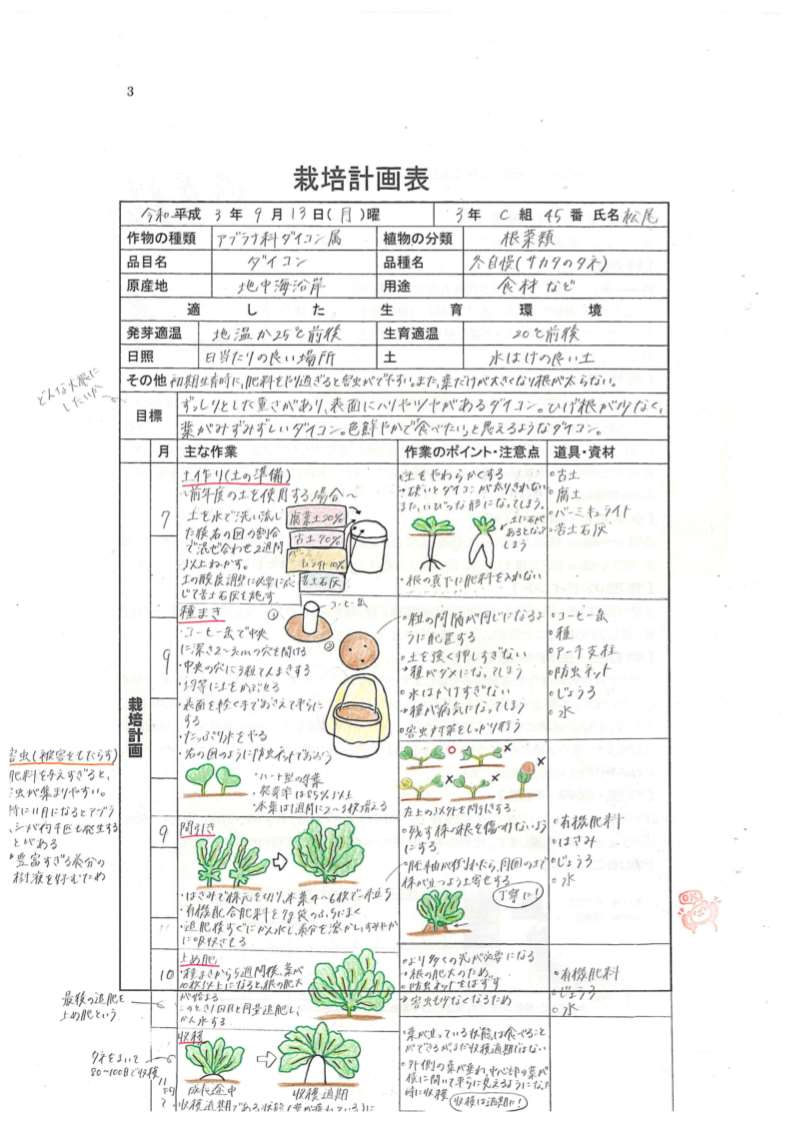 3
栽培計画表
令和 平成 3 年 9 月 13 日(月)曜 3 年 C 組 45 番 氏名 松尾
作物の種類 アブラナ科ダイコン属 植物の分類 根菜類
品目名 ダイコン 品種名 冬自慢(サカタのタネ)
原産地 地中海沿岸 用途 食材など
適した生育環境
発芽適温 地温が25℃前後 生育適温 20℃前後
日照 日当たりの良い場所 土 水はけの良い土
その他 初期生育時に、肥料をやり過ぎると害虫がでやすい。また、葉だけが大きくなり根が太らない。
どんな大根に
したいか
目標 ずっしりとした重さがあり、表面にハリやツヤがあるダイコン。ひげ根が少なく、
葉がみずみずしいダイコン。色鮮やかで食べたいと思えるようなダイコン。
月 主な作業 作業のポイント・注意点 道具・資材
栽培計画
7
土作り(土の準備)
〜前年度の土を使用する場合〜
土を水で洗い流し
た後右の図の割合
で混ぜ合わせ2週間
以上ねかす。
土の酸度調整に必要に応
じて苦土石灰を施す
腐葉土20%
古土70%
バーミキュライト10%
苦土石灰
・土をやわらかくする
→硬いとダイコンが太りきれない
また、いびつな形になってしまう。
土に石が
あるとなって
しまう
・根の真下に肥料を入れない
・古土
・腐土
・バーミキュライト
・苦土石灰
9
種まき
①
コーヒー缶
②
・コーヒー缶で中央
に深さ2〜3cmの穴を開ける
・中央の穴に3粒てんまきする
・均等に土をかぶせる
・表面を軽く手でおさえて平らに
する
・たっぷり水をやる
・右の図のように防虫ネットでおおう
・種の間隔が同じになるよ
うに配置する
・土を強く押しすぎない
→種がダメになってしまう
・水はかけすぎない
→種が病気になってしまう
・害虫対策をしっかり行う
・コーヒー缶
・種
・アーチ支柱
・防虫ネット
・じょうろ
・水
・ハート型の子葉
・発芽率は85%以上
・本葉は1週間に2〜3枚増える
害虫(被害をもたらす)
肥料を与えすぎると、
虫が集まりやすい。
特に11月になるとアブラ
ムシが何千匹も発生する
ことがある
→豊富すぎる養分の
樹液を好むため
9
間引き
・はさみで株元を切り、本葉4〜6枚で一本立ち
・有機配合肥料を7g袋のふちにまく
・追肥後すぐにかん水し、養分を溶かし、すみやか
に吸収させる
左上の○以外を間引きする
・残す株の根を傷つけないよう
にする
・胚軸が徒長したら、周囲の土で
株が立つよう土寄せする
丁寧に!
・有機肥料
・はさみ
・じょうろ
・水
OK
10
止め肥
・種まきから5週間後、葉が
10枚以上になると、根の肥大
が始まる
このとき1回目と同量追肥し、
かん水する
・より多くの光が必要になる
→根の肥大のため
・防虫ネットをはずす
→害虫も少なくなるため
・有機肥料
・じょうろ
・水
最後の追肥を
止め肥という
収穫
タネをまいて
80〜100日で収穫
11
成長途中
収穫適期
・葉が立っている状態は食べること
ができるがまだ収穫適期ではない
・外側の葉が垂れ、中心部の葉が
横に開いて平らに見えるようになった
時に収穫
収穫は適期に!